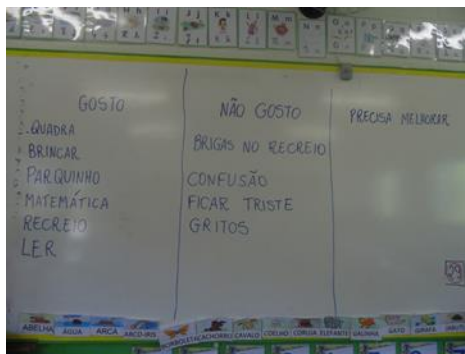 GOSTO
.QUADRA
BRINCAR
PARQUINHO
MATEMÁTICA
RECREIO
LER
NÃO GOSTO
BRIGAS NO RECREIO
CONFUSÃO
FICAR TRISTE
GRITOS
PRECISA MELHORAR
59
ABELHA ÁGUA ARCA ARCO-ÍRIS BORBOLETA CACHORRO CAVALO COELHO CORUJA ELEFANTE GALINHA GATO GIRAFA